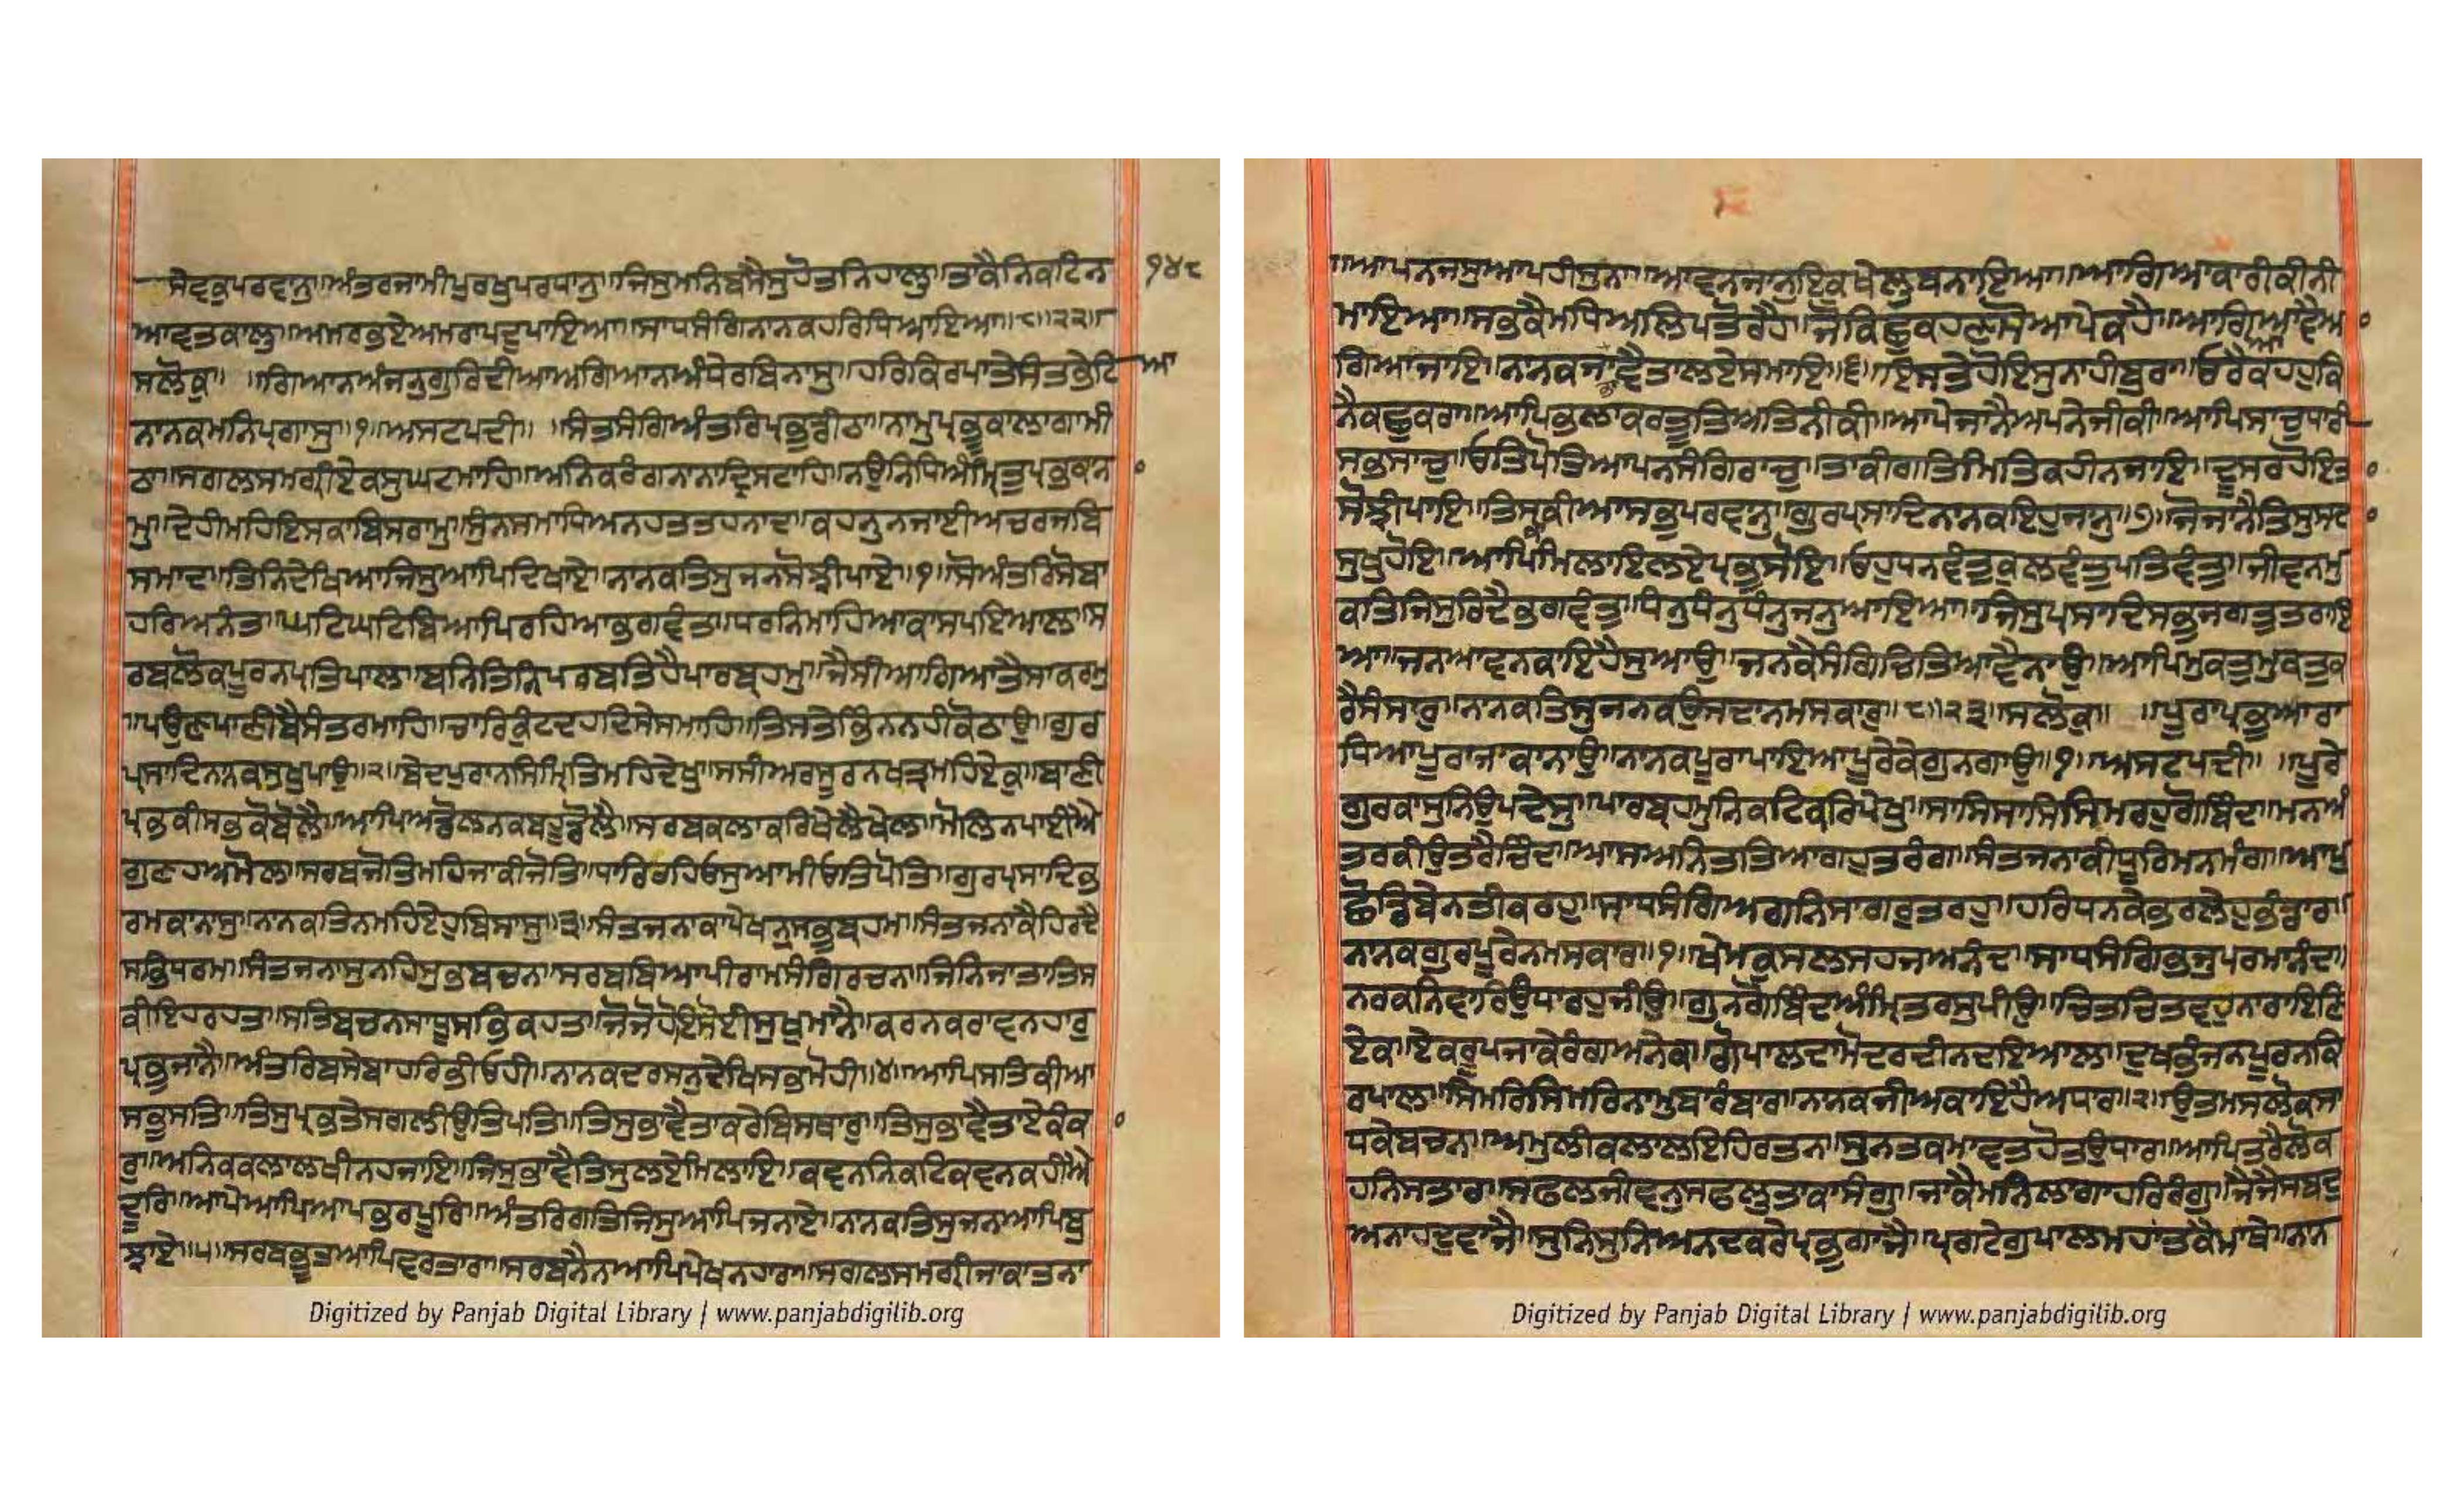 ਸੇਵਕੁਪਰਵਾਨੁ॥ਅੰਤਰਜਾਮੀਪੁਰਖੁਪਰਧਾਨੁ॥ਜਿਸੁਮਨਿਬਸੈਸੁਹੋਤਨਿਹਾਲੁ॥ਤਾਕੈਨਿਕਟਿਨ ੧੪੮
ਆਵਤਕਾਲੁ॥ਅਮਰਭਏਅਮਰਾਪਦੁਪਾਇਆ॥ਸਾਧਸੰਗਿਨਾਨਕਹਰਿਧਿਆਇਆ॥੮॥੨੨॥
ਸਲੋਕੁ॥ ॥ਗਿਆਨਅੰਜਨੁਗੁਰਿਦੀਆਅਗਿਆਨਅੰਧੇਰਬਿਨਾਸੁ॥ਹਰਿਕਿਰਪਾਤੇਸੰਤਭੇਟਿ ਆ
ਨਾਨਕਮਨਿਪ੍ਰਗਾਸੁ॥੧॥ਅਸਟਪਦੀ॥ ॥ਸੰਤਸੰਗਿਅੰਤਰਿਪ੍ਰਭੁਡੀਠਾ॥ਨਾਮੁਪ੍ਰਭੂਕਾਲਾਗਾਮੀ
ਠਾ॥ਸਗਲਸਮਗ੍ਰੀਏਕਸੁਘਟਮਾਹਿ॥ਅਨਿਕਰੰਗਨਾਨਾਦ੍ਰਿਸਟਾਹਿ॥ਨਉਨਿਧਿਅੰਮ੍ਰਿਤੁਪ੍ਰਭਕਾਨਾ
ਮੁ॥ਦੇਹੀਮਹਿਇਸਕਾਬਿਸਰਾਮੁ॥ਸੁੰਨਸਮਾਧਿਅਨਹਤਤਹਨਾਦ॥ਕਹਨੁਨਜਾਈਅਚਰਜਬਿ
ਸਮਾਦ॥ਤਿਨਿਦੇਖਿਆਜਿਸੁਆਪਿਦਿਖਾਏ॥ਨਾਨਕਤਿਸੁਜਨਸੋਝੀਪਾਏ॥੧॥ਸੋਅੰਤਰਿਸੋਬਾ
ਹਰਿਅਨੰਤ॥ਘਟਿਘਟਿਬਿਆਪਿਰਹਿਆਭਗਵੰਤ॥ਧਰਨਿਮਾਹਿਆਕਾਸਪਇਆਲ॥ਸ
ਰਬਲੋਕਪੂਰਨਪ੍ਰਤਿਪਾਲ॥ਬਨਿਤਿਨਿਪਰਬਤਿਹੈਪਾਰਬ੍ਰਹਮੁ॥ਜੈਸੀਆਗਿਆਤੈਸਾਕਰਮੁ
॥ਪਉਣਪਾਣੀਬੈਸੰਤਰਮਾਹਿ॥ਚਾਰਿਕੁੰਟਦਹਦਿਸੇਸਮਾਹਿ॥ਤਿਸਤੇਭਿੰਨਨਹੀਕੋਠਾਉ॥ਗੁਰ
ਪ੍ਰਸਾਦਿਨਾਨਕਸੁਖੁਪਾਉ॥੨॥ਬੇਦਪੁਰਾਨਸਿੰਮ੍ਰਿਤਿਮਹਿਦੇਖੁ॥ਸਸੀਅਰਸੂਰਨਖਤ੍ਰਮਹਿਏਕੁ॥ਬਾਣੀ
ਪ੍ਰਭਕੀਸਭਕੋਬੋਲੈ॥ਆਪਿਅਡੋਲਨਕਬਹੂਡੋਲੈ॥ਸਰਬਕਲਾਕਰਿਖੇਲੈਖੇਲ॥ਮੋਲਿਨਪਾਈਐ
ਗੁਣਹਅਮੋਲ॥ਸਰਬਜੋਤਿਮਹਿਜਾਕੀਜੋਤਿ॥ਧਾਰਿਰਹਿਓਸੁਆਮੀਓਤਿਪੋਤਿ॥ਗੁਰਪ੍ਰਸਾਦਿਭ
ਰਮਕਾਨਾਸੁ॥ਨਾਨਕਤਿਨਮਹਿਏਹੁਬਿਸਾਸੁ॥੩॥ਸੰਤਜਨਾਕਾਪੇਖਨੁਸਭੁਬ੍ਰਹਮ॥ਸੰਤਜਨਾਕੈਹਿਰਦੈ
ਸਭਿਧਰਮ॥ਸੰਤਜਨਾਸੁਨਹਿਸੁਭਬਚਨ॥ਸਰਬਬਿਆਪੀਰਾਮਸੰਗਿਰਚਨ॥ਜਿਨਿਜਾਤਾਤਿਸ
ਕੀਇਹਰਹਤ॥ਸਤਿਬਚਨਸਾਧੂਸਭਿਕਹਤ॥ਜੋਜੋਹੋਇਸੋਈਸੁਖੁਮਾਨੈ॥ਕਰਨਕਰਾਵਨਹਾਰੁ
ਪ੍ਰਭੁਜਾਨੈ॥ਅੰਤਰਿਬਸੇਬਾਹਰਿਭੀਓਹੀ॥ਨਾਨਕਦਰਸਨੁਦੇਖਿਸਭਮੋਹੀ॥੪॥ਆਪਿਸਤਿਕੀਆ
ਸਭੁਸਤਿ॥ਤਿਸੁਪ੍ਰਭਤੇਸਗਲੀਉਤਪਤਿ॥ਤਿਸੁਭਾਵੈਤਾਕਰੇਬਿਸਥਾਰੁ॥ਤਿਸੁਭਾਵੈਤਾਏਕੰਕਾ
ਰੁ॥ਅਨਿਕਕਲਾਲਖੀਨਹਜਾਇ॥ਜਿਸੁਭਾਵੈਤਿਸੁਲਏਮਿਲਾਇ॥ਕਵਨਨਿਕਟਿਕਵਨਕਹੀਐ
ਦੂਰਿ॥ਆਪੇਆਪਿਆਪਭਰਪੂਰਿ॥ਅੰਤਰਿਗਤਿਜਿਸੁਆਪਿਜਨਾਏ॥ਨਾਨਕਤਿਸੁਜਨਆਪਿਬੁ
ਝਾਏ॥੫॥ਸਰਬਭੂਤਆਪਿਵਰਤਾਰਾ॥ਸਰਬਨੈਨਆਪਿਪੇਖਨਹਾਰਾ॥ਸਗਲਸਮਗ੍ਰੀਜਾਕਾਤਨਾ
Digitized by Panjab Digital Library | www.panjabdigilib.org
॥ਆਪਨਜਸੁਆਪਹੀਸੁਨਾ॥ਆਵਨਜਾਨੁਇਕਖੇਲੁਬਨਾਇਆ॥ਆਗਿਆਕਾਰੀਕੀਨੀ
ਮਾਇਆ॥ਸਭਕੈਮਧਿਅਲਿਪਤੋਰਹੈ॥ਜੋਕਿਛੁਕਹਣਾਸੋਆਪੇਕਹੈ॥ਆਗਿਆਆਵੈਆ
ਗਿਆਜਾਇ॥ਨਾਨਕਜਾਭਾਵੈਤਾਲਏਸਮਾਇ॥੬॥ਇਸਤੇਹੋਇਸੁਨਾਹੀਬੁਰਾ॥ਓਰੈਕਹਹੁਕਿ
ਨੈਕਛੁਕਰਾ॥ਆਪਿਭਲਾਕਰਤੂਤਿਅਤਿਨੀਕੀ॥ਆਪੇਜਾਨੈਅਪਨੇਜੀਕੀ॥ਆਪਿਸਾਚੁਧਾਰੀ
ਸਭਸਾਚੁ॥ਓਤਿਪੋਤਿਆਪਨਸੰਗਿਰਾਚੁ॥ਤਾਕੀਗਤਿਮਿਤਿਕਹੀਨਜਾਇ॥ਦੂਸਰਹੋਇਤ
ਸੋਝੀਪਾਇ॥ਤਿਸੁਕਾਕੀਆਸਭੁਪਰਵਾਨੁ॥ਗੁਰਪ੍ਰਸਾਦਿਨਾਨਕਇਹੁਜਾਨੁ॥੭॥ਜੋਜਾਨੈਤਿਸੁਸਦਾ
ਸੁਖੁਹੋਇ॥ਆਪਿਮਿਲਾਇਲਏਪ੍ਰਭੁਸੋਇ॥ਓਹੁਧਨਵੰਤੁਕੁਲਵੰਤੁਪਤਿਵੰਤੁ॥ਜੀਵਨਮੁ
ਕਤਿਜਿਸੁਰਿਦੈਭਗਵੰਤੁ॥ਧੰਨੁਧੰਨੁਧੰਨੁਜਨੁਆਇਆ॥ਜਿਸੁਪ੍ਰਸਾਦਿਸਭੁਜਗਤੁਤਰਾਇ
ਆ॥ਜਨਆਵਨਕਾਇਹੈਸੁਆਉ॥ਜਨਕੈਸੰਗਿਚਿਤਿਆਵੈਨਾਉ॥ਆਪਿਮੁਕਤੁਮੁਕਤੁਕ
ਰੈਸੰਸਾਰੁ॥ਨਾਨਕਤਿਸੁਜਨਕਉਸਦਾਨਮਸਕਾਰੁ॥੮॥੨੩॥ਸਲੋਕੁ॥ ॥ਪੂਰਾਪ੍ਰਭੁਆਰਾ
ਧਿਆਪੂਰਾਜਾਕਾਨਾਉ॥ਨਾਨਕਪੂਰਾਪਾਇਆਪੂਰੇਕੇਗੁਨਗਾਉ॥੧॥ਅਸਟਪਦੀ॥ ॥ਪੂਰੇ
ਗੁਰਕਾਸੁਨਿਉਪਦੇਸੁ॥ਪਾਰਬ੍ਰਹਮੁਨਿਕਟਿਕਰਿਪੇਖੁ॥ਸਾਸਿਸਾਸਿਸਿਮਰਹੁਗੋਬਿੰਦ॥ਮਨਅੰ
ਤਰਕੀਉਤਰੈਚਿੰਦ॥ਆਸਅਨਿਤਤਿਆਗਹੁਤਰੰਗ॥ਸੰਤਜਨਾਕੀਧੂਰਿਮਨਮੰਗ॥ਆਪੁ
ਛੋਡਿਬੇਨਤੀਕਰਹੁ॥ਸਾਧਸੰਗਿਅਗਨਿਸਾਗਰੁਤਰਹੁ॥ਹਰਿਧਨਕੇਭਰਲੇਹੁਭੰਡਾਰ॥
ਨਾਨਕਗੁਰਪੂਰੇਨਮਸਕਾਰ॥੧॥ਖੇਮਕੁਸਲਸਹਜਆਨੰਦ॥ਸਾਧਸੰਗਿਭਜੁਪਰਮਾਨੰਦ॥
ਨਰਕਨਿਵਾਰਿਉਧਾਰਹੁਜੀਉ॥ਗੁਨਗੋਬਿੰਦਅੰਮ੍ਰਿਤਰਸੁਪੀਉ॥ਚਿਤਚਿਤਵਹੁਨਾਰਾਇਣ
ਏਕ॥ਏਕਰੂਪਜਾਕੇਰੰਗਅਨੇਕ॥ਗੋਪਾਲਦਾਮੋਦਰਦੀਨਦਇਆਲ॥ਦੁਖਭੰਜਨਪੂਰਨਕਿ
ਰਪਾਲ॥ਸਿਮਰਿਸਿਮਰਿਨਾਮੁਬਾਰੰਬਾਰ॥ਨਾਨਕਜੀਅਕਾਇਹੈਅਧਾਰ॥੨॥ਉਤਮਸਲੋਕਸਾ
ਧਕੇਬਚਨ॥ਅਮੁਲੀਕਲਾਲਇਹਿਰਤਨ॥ਸੁਨਤਕਮਾਵਤਹੋਤਉਧਾਰ॥ਆਪਿਤਰੈਲੋਕ
ਹਨਿਸਤਾਰ॥ਸਫਲਜੀਵਨੁਸਫਲੁਤਾਕਾਸੰਗੁ॥ਜਾਕੈਮਨਿਲਾਗਾਹਰਿਰੰਗੁ॥ਜੈਜੈਸਬਦੁ
ਅਨਾਹਦੁਵਾਜੈ॥ਸੁਨਿਸੁਨਿਅਨਦਕਰੇਪ੍ਰਭੁਗਾਜੈ॥ਪ੍ਰਗਟੇਗੁਪਾਲਮਹਾਂਤਕੈਮਾਥੇ॥ਨਾਨ
Digitized by Panjab Digital Library | www.panjabdigilib.org